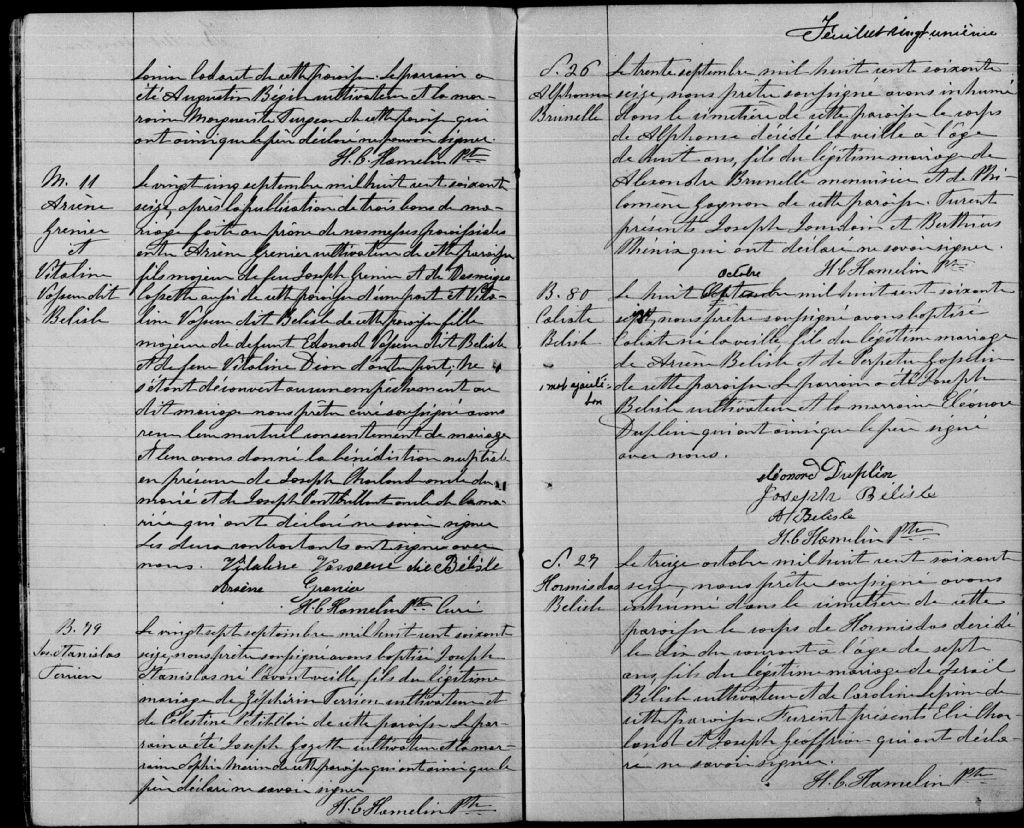 été Augustin Bégin cultivateur et la mar-
raine Marguerite Turgeon de cette paroisse qui
ont ainsi que le père déclaré ne pouvoir signer.
H. C. Hamelin Ptre
M. 11
Arsène
Grenier
et
Vitaline
Vasseur dit
Belisle
Le vingt cinq septembre mil huit cent soixante
seize, après la publication de trois bans de ma-
riage faite au prône de nos messes paroissiales
entre Arsène Grenier cultivateur de cette paroisse
fils majeur de feu Joseph Grenier et de Desanges
aussi de cette paroisse d'une part et Vita-
line Vasseur dit Belisle de cette paroisse fille
majeure de défunt Edouard Vasseur dit Belisle
et de feu Vitaline Dion d'autre part; ne
s'étant découvert aucun empêchement au
dit mariage nous prêtre curé soussigné avons
reçu leur mutuel consentement de mariage
et leur avons donné la bénédiction nuptiale
en présence de Joseph Charland oncle du
marié et de Joseph oncle de la ma-
riée qui ont déclaré ne savoir signer
Les deux contractants ont signé avec
nous. Vitaline Belisle
Arsène Grenier
H. C. Hamelin Ptre Curé
B. 79
Jos. Stanislas
Terrien
Le vingt sept septembre mil huit cent soixante
seize, nous prêtre soussigné avons baptisé Joseph
Stanislas né l'avant veille, fils du légitime
mariage de Zéphirin Terrien cultivateur et
de Célestine de cette paroisse. Le par-
rain a été Joseph cultivateur et la mar-
raine Sophie Marin de cette paroisse qui ont ainsi que le
père déclaré ne savoir signer
H. C. Hamelin Ptre
Feuillet vingt unième
S. 26
Alphonse
Brunelle
Le trente septembre mil huit cent soixante
seize, nous prêtre soussigné avons inhumé
dans le cimetière de cette paroisse le corps
de Alphonse décédé la veille à l'âge
de huit ans, fils du légitime mariage de
Alexandre Brunelle menuisier et de Phi-
lomène Gagnon de cette paroisse. Furent
présents Joseph Jourdain et
qui ont déclaré ne savoir signer.
H. C. Hamelin Ptre
B. 80
Calixte
Belisle
1 mot ajouté
bon
octobre
Le huit septembre mil huit cent soixante
seize, nous prêtre soussigné avons baptisé
Calixte né la veille, fils du légitime mariage
de Arsène Belisle et de Perpétue Gosselin
de cette paroisse. Le parrain a été Joseph
Belisle cultivateur et la marraine Eléonore
Dueplin qui ont ainsi que le père signé
avec nous.
eléonord Dueplin
Joseph Belisle
A. Belisle
H. C. Hamelin Ptre
S. 27
Hormisdas
Belisle
Le treize octobre mil huit cent soixante
seize, nous prêtre soussigné avons
inhumé dans le cimetière de cette
paroisse le corps de Hormisdas décédé
le dix du courant à l'âge de sept
ans, fils du légitime mariage de Israël
Belisle cultivateur et de Caroline Lepine de
cette paroisse. Furent présents Elie Char-
land et Joseph Geoffrion qui ont décla-
ré ne savoir signer.
H. C. Hamelin Ptre